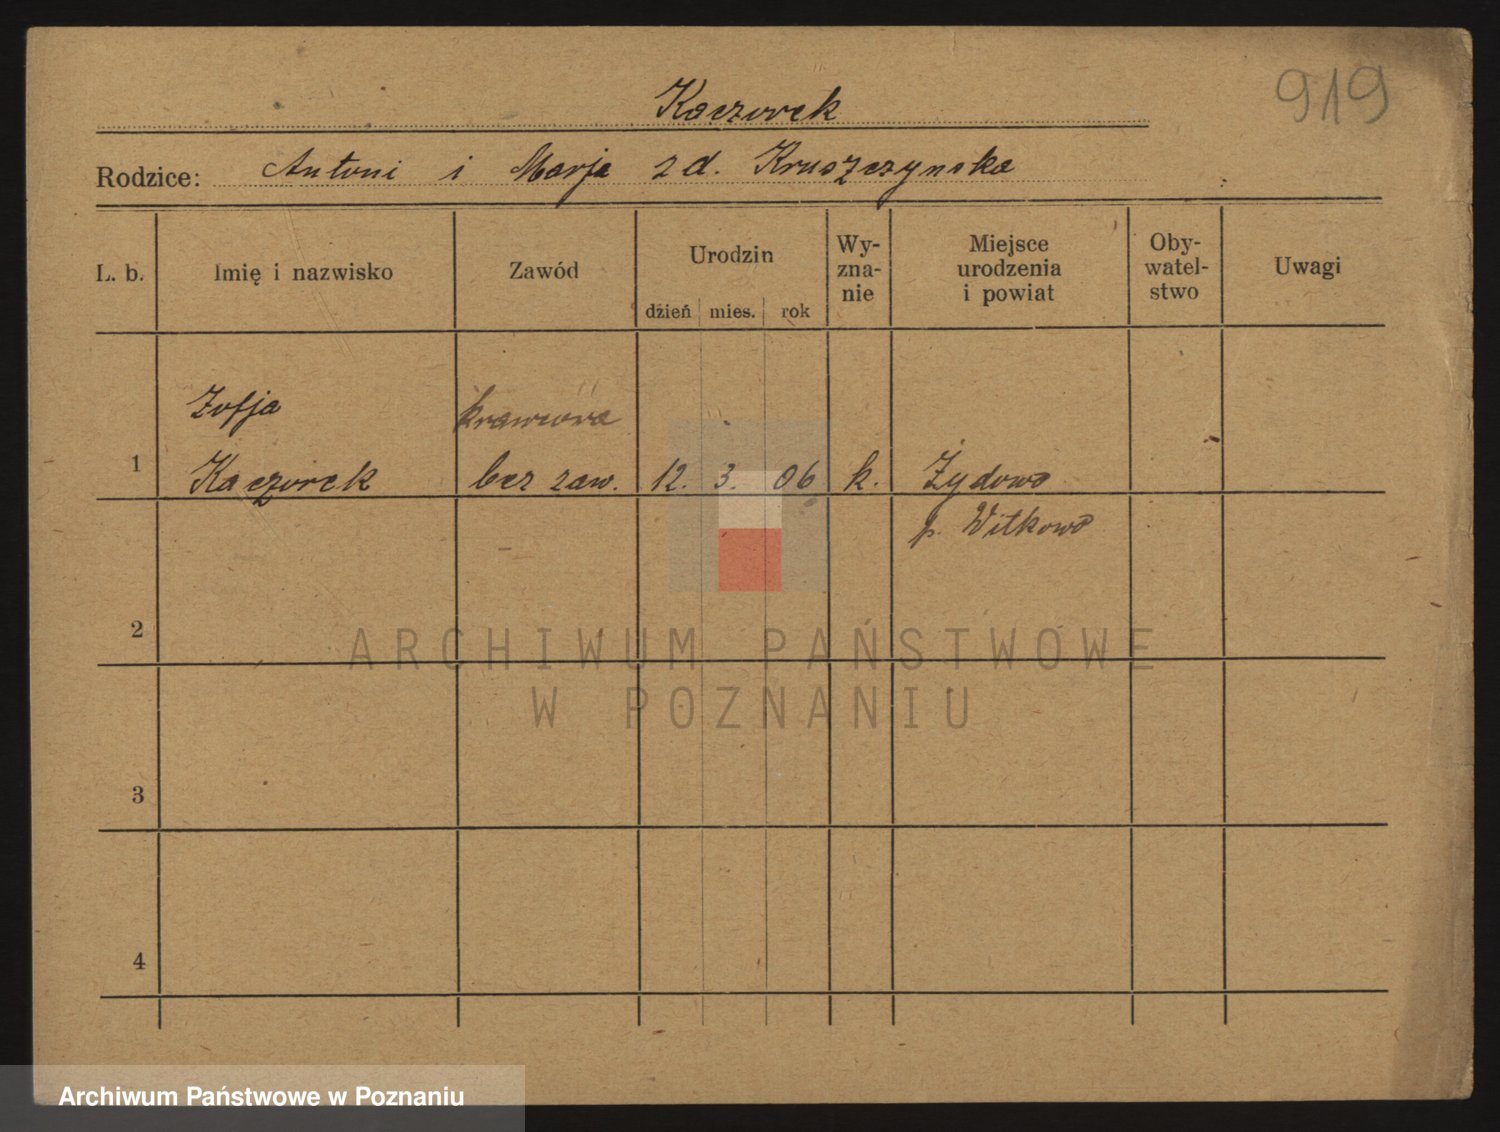 919
Kaczorek
Rodzice: Antoni i Marja z d. Kruszczynska
L. b. Imię i nazwisko Zawód Urodzin dzień mies. rok Wy-zna-nie Miejsce urodzenia i powiat Oby-watel-stwo Uwagi
Zofja krawcowa
1 Kaczorek bez zaw. 12. 3. 06 k. Żydowo
p. Witkowo
2
ARCHIWUM PAŃSTWOWE
W POZNANIU
3
4
Archiwum Państwowe w Poznaniu